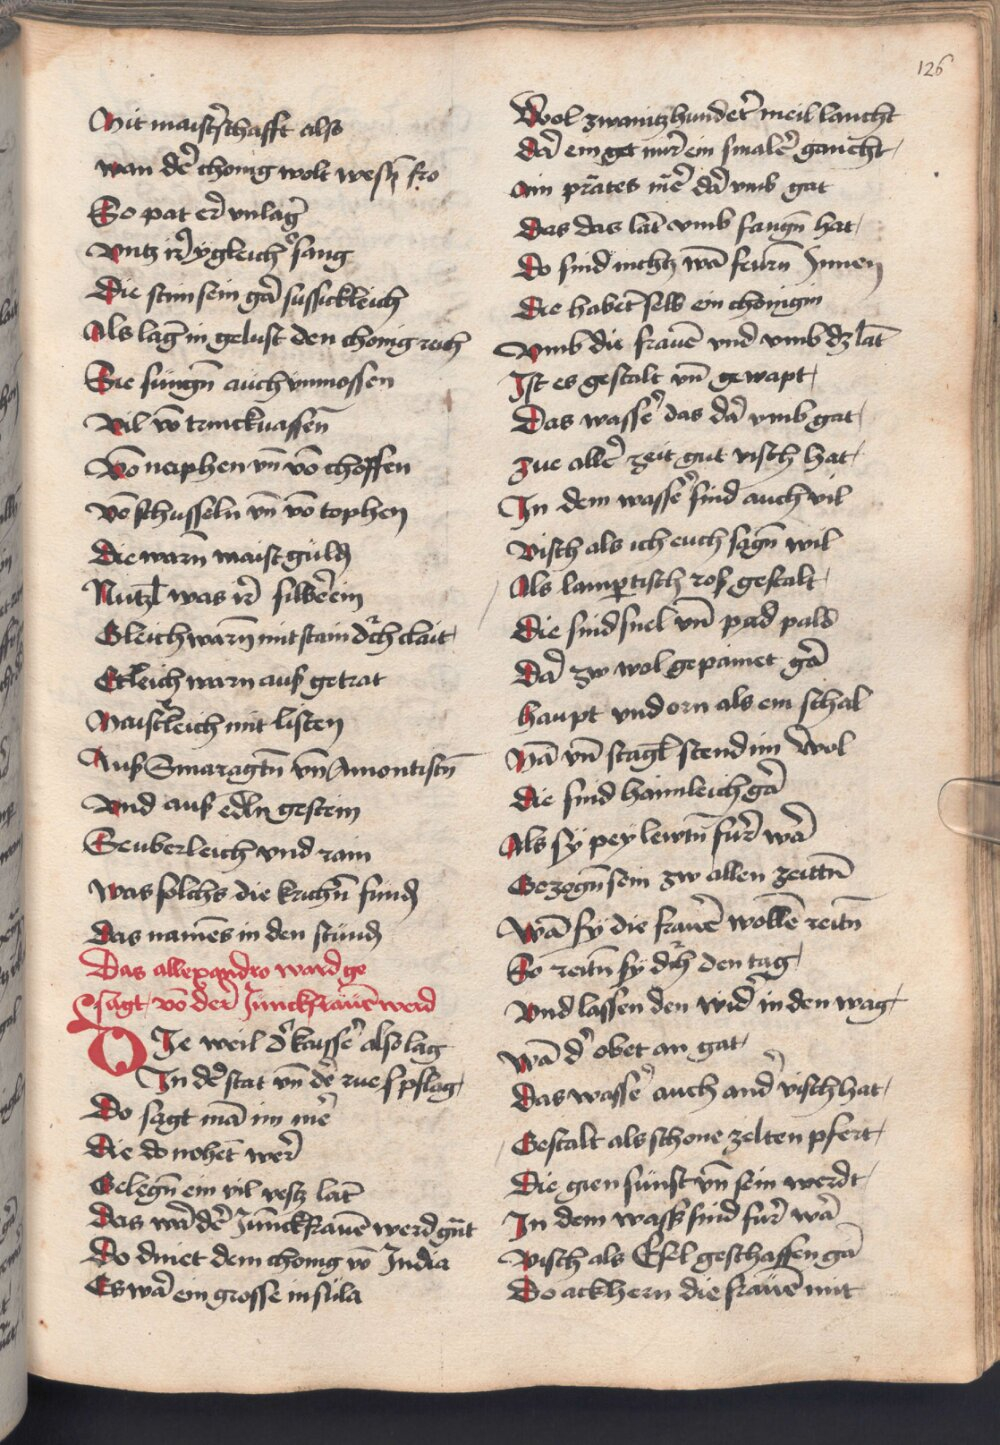 126
Mit maisterschafft also
wan der chonig wolt wesen fro
So pat er vnlag
Vntz ir ygleich sang
Die stim sein gar sussickleich
Als lag in gelust den chonig reich
Sie sungn auch vnmossen
Vil vō trinckvassen
Vō nephen vn̄ vō choffen
Vō schusseln vn̄ vō tophen
Die warn maist guldn
Nutzt was ir silberein
Gleich warn mit stain durch clait
Etleich warn aus getrat
Maisterleich mit listen
Aus Smaragtn vn̄ Amontistn
Vnd aus edln gestein
Seuberleich vnd rain
Was solchs die krichn funden
Das namens in den stunden
Das allexandro ward ge
sagt vō der Junckfrauen werd
DJe weil der kaisser also lag
Jn der stat vn̄ der rue pflag
Do sagt mā im mer
Die do nohet wer
Gelegn ein vil vestz lāt
Das wār der Junckfrauen werd gnāt
Do dinet dem chonig vō Jndia
Es wār ein grosse insula
Wol zwaintzhundert meil lancht
Dar ein get nur ein smaler gancht
Ain prates mer dar vmb gat
Das das lāt vmb fangn hat
Do sind nichtz wā frawn Jnnen
Die habent selb ein chonigin
Vmb die frauē vnd vmb dz lāt
Jst es gestalt vn̄ gewapt
Das wasser das dar vmb gat
Zue aller zeit gut visch hat
Jn dem wasser sind auch vil
Visch als ich euch sagn wil
Als lampertisch ros gestalt
Die sind snel vn̄ pad pald
Dar zw wol gepainet gar
haupt vnd orn als ein schal
Mā vn̄ stagl stend im wol
Die sind haimleich gar
Als sy pey lewtn fur war
Gezogn sein zw allen zeittn
Wā sy die frauē wollē reitn
So reitn sy durch den tag
Vnd lassen den wider in den wag
Wā der obet an gat
Das wasser auch ander visch hat
Gestalt als schone zelten pfert
Die gien sunst vn̄ sein werdt
Jn dem wasser sind fur war
Visch als Esel geschaffen gar
Do ackhern die frauē mit